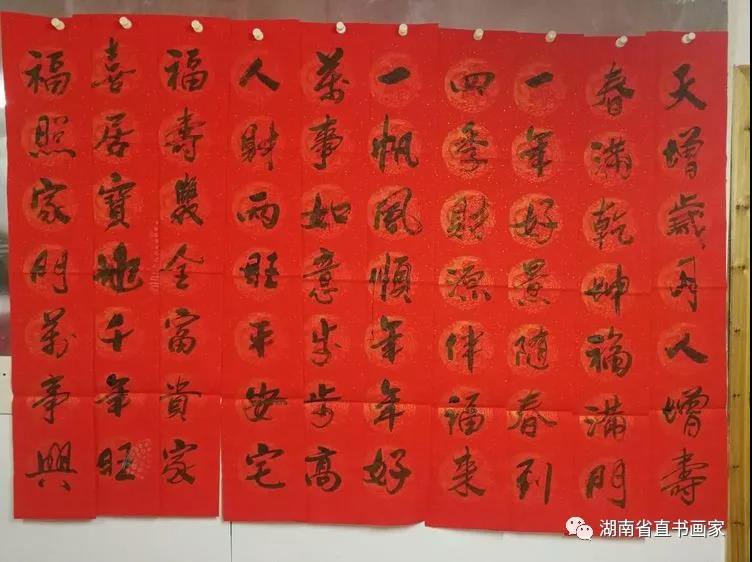 天增歲月人增壽
春滿乾坤福滿門
一年好景隨春到
四季財源伴福來
一帆風順年年好
萬事如意步步高
人財兩旺平安宅
福壽雙全富貴家
喜居寶地千年旺
福照家門萬事興
湖南省直书画家